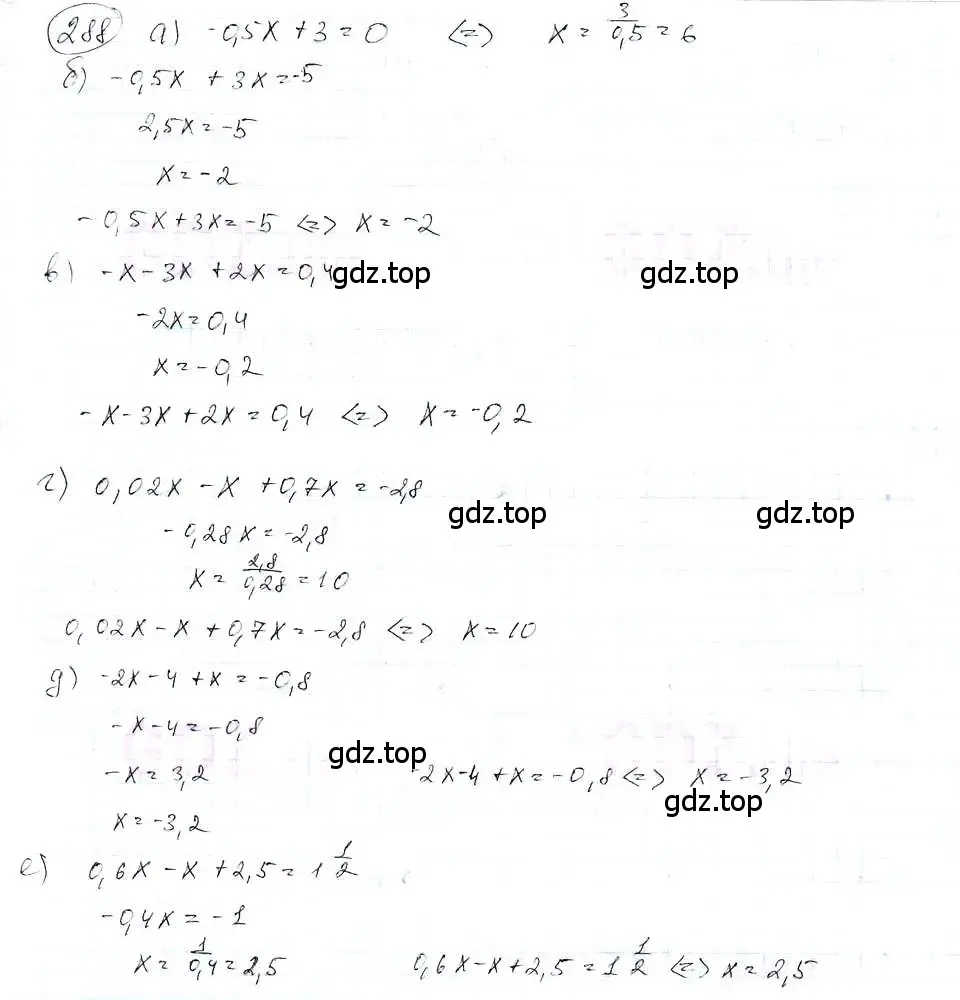 288 а) -0,5x + 3 = 0 <=> x = 3/0,5 = 6
б) -0,5x + 3x = -5
2,5x = -5
x = -2
-0,5x + 3x = -5 <=> x = -2
в) -x - 3x + 2x = 0,4 gdz.top gdz.top
-2x = 0,4
x = -0,2
-x - 3x + 2x = 0,4 <=> x = -0,2
г) 0,02x - x + 0,7x = -2,8
gdz.top gdz.top
-0,28x = -2,8
x = 2,8/0,28 = 10
0,02x - x + 0,7x = -2,8 <=> x = 10
д) -2x - 4 + x = -0,8
-x - 4 = -0,8
gdz.top
-x = 3,2 -2x - 4 + x = -0,8 <=> x = -3,2
gdz.top
x = -3,2
е) 0,6x - x + 2,5 = 1 1/2
-0,4x = -1
x = 1/0,4 = 2,5 0,6x - x + 2,5 = 1 1/2 <=> x = 2,5